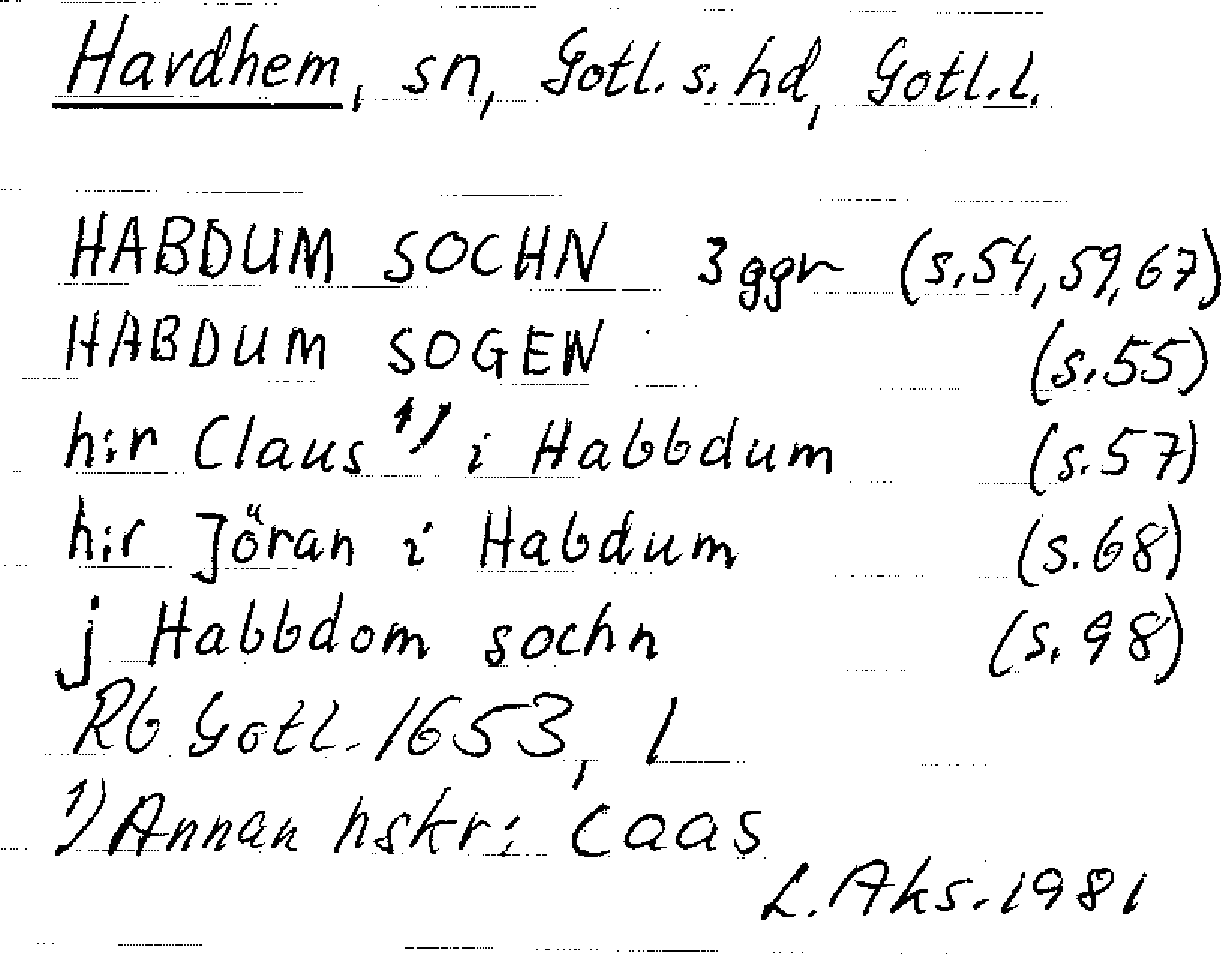 Havdhem, sn, Gotl. s. hd, Gotl. l.
HABDUM SOCHN 3 ggr (s. 54, 59, 67)
HABDUM SOGEN (s. 55)
h:r Claus 1) i Habbdum (s. 57)
h:r Jöran i Habdum (s. 68)
j Habbdom sochn (s. 98)
Rb Gotl. 1653, 1
1) Annan hskr: Caas
L. Aks. 1981